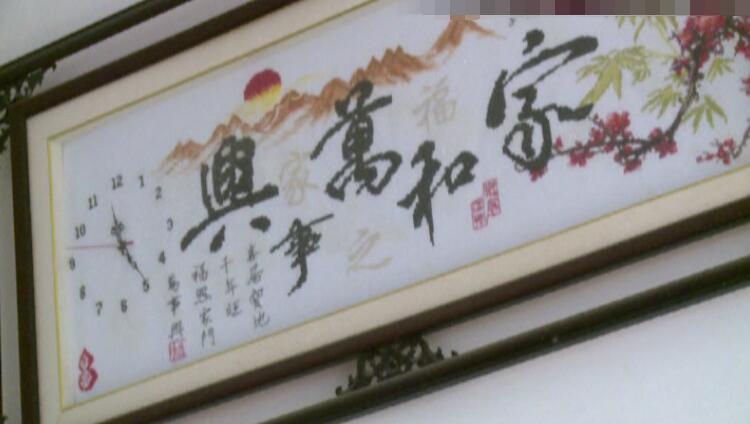 家和萬事興
福
家
之
喜居寶地
千年旺
福照家門
萬事興
12
1
2
3
4
5
6
7
8
9
10
11